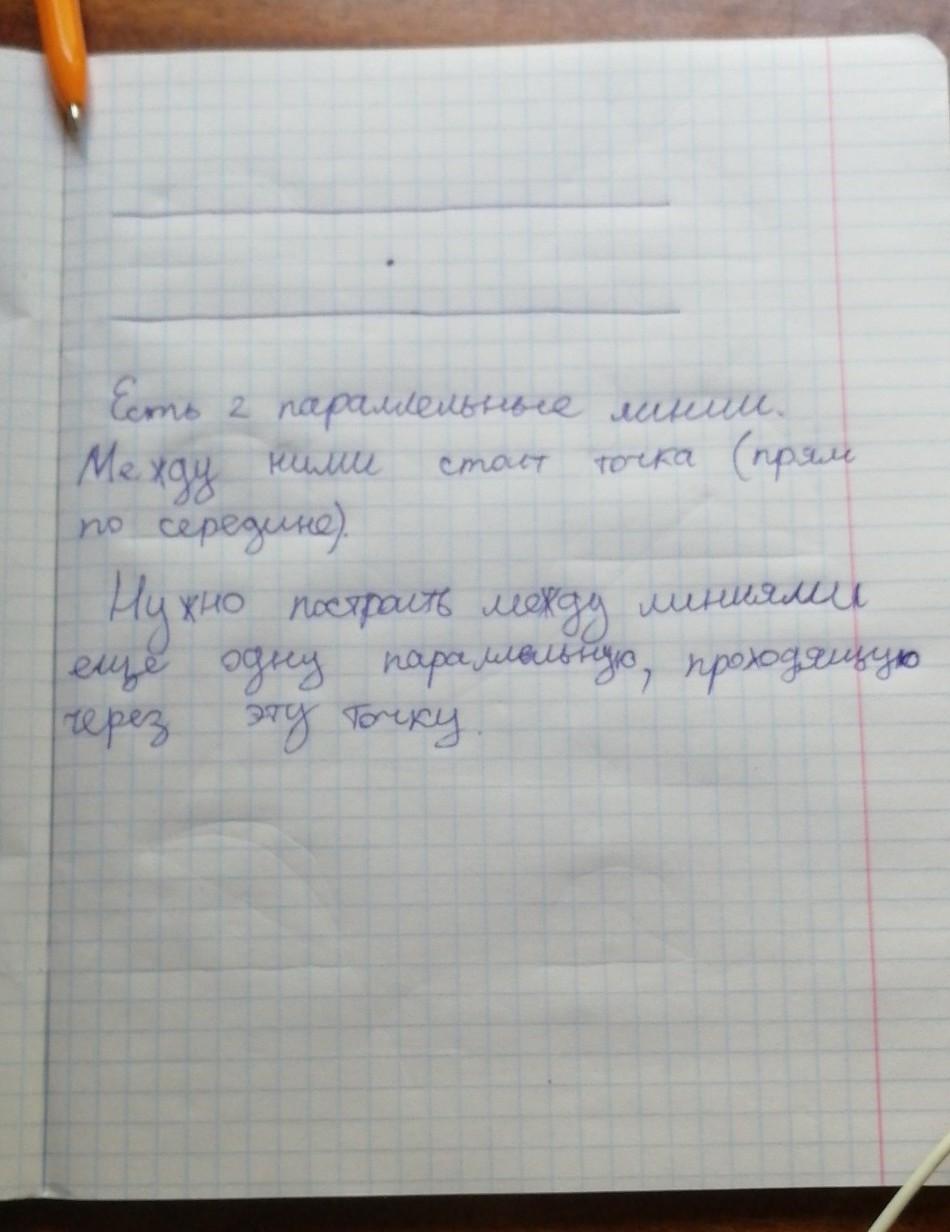 Есть 2 параллельные линии.
Между ними стоит точка (прям
по середине).
Нужно построить между линиями
ещё одну параллельную, проходящую
через эту точку.